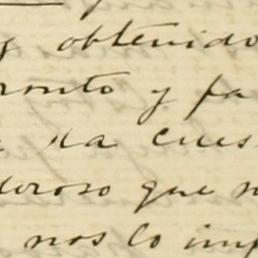 y obtenido
ronto y fa
ha cues
deroso que n
nos lo imp